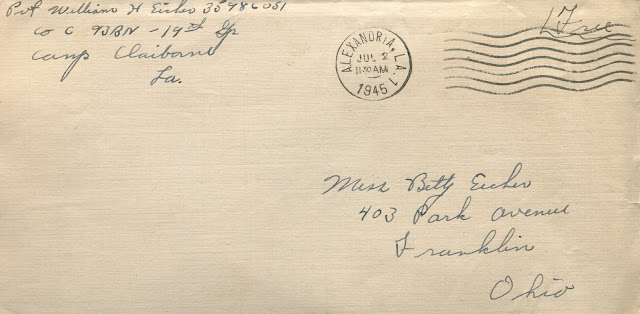 Pvt William H Eicher 35986051
Co C 93BN - 19th Gp
Camp Claiborne
La.
ALEXANDRIA, LA.
JUL 2
1130AM
1945
Free
Miss Betty Eicher
403 Park avenue
Franklin
Ohio